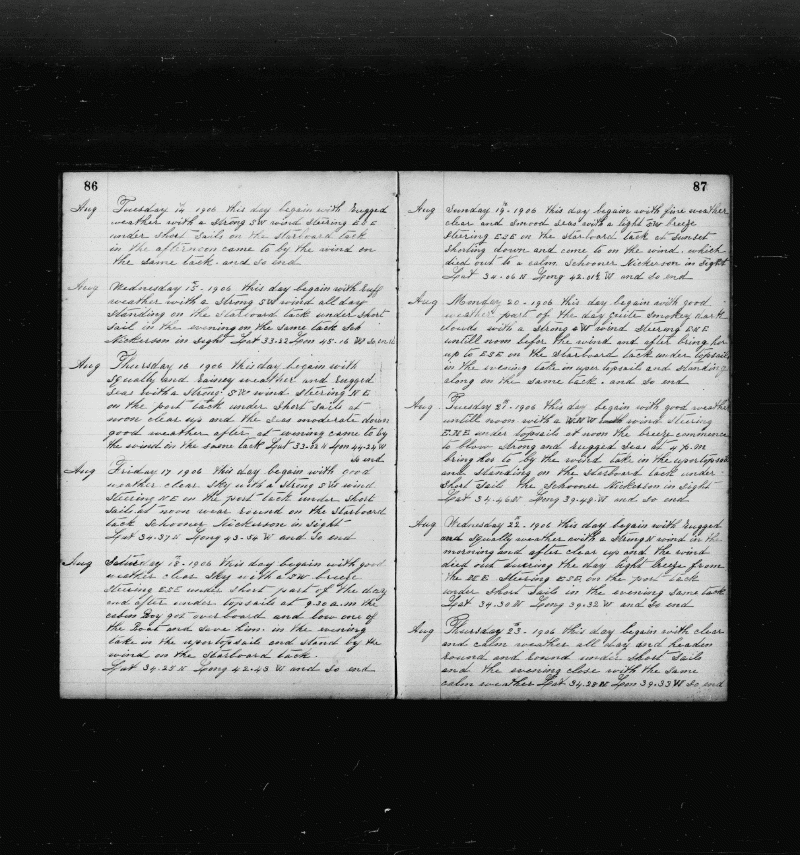 86
Aug Tuesday 14 1906 this day begain with Rugged
weather with a Strong SW wind Steering ESE
under Short Sails on the Starboard tack
in the afternoon came to by the wind on
the same tack and So end
Aug Wednesday 15th - 1906 this day begain with Ruff
weather with a Strong SW wind all day
Standing on the Starboard tack under Short
Sail in the evening on the same tack Sch
Nickerson in Sight Lat 33-22 Lon 45-16 W So end
Aug Thursday 16 1906 this day begain with
Squally and Rainey weather and Rugged
Seas with a Strong SW wind Steering NE
on the port tack under Short Sails at
noon clear up and the Seas moderate down
good weather after at evening came to by
the wind on the same tack Lat 33-22 N Lon 44-24 W
So end
Aug Friday 17 1906 this day begain with good
weather clear Sky with a Strong SW wind
Steering NE on the port tack under Short
Sails at noon wear round on the Starboard
tack Schooner Nickerson in Sight
Lat 34-37 N Long 43-54 W and So end
Aug Saturday 18th - 1906 this day begain with good
weather clear Sky with a SW breeze
Steering ESE under Short part of the day
and after under topsails at 9.30 a.m the
cabin Boy got overboard and low one of
the Boat and Save him in the evening
take in the uportopsail and Stand by the
wind on the Starboard tack.
Lat 34-25 N Long 42-43 W and So end
87
Aug Sunday 19th - 1906 this day begain with fine weather
clear and Smood Seas with a light SW breeze
Steering ESE on the Starboard tack at Sunset
Shorting down and come to on the wind which
died out to a calm Schooner Nickerson in Sight
Lat 34-06 N Long 42-01 W and So end
Aug Monday 20 - 1906 this day begain with good
weather part of the day quite Smokey dark
clouds with a Strong SW wind Steering ENE
untill noon befor the wind and after bring her
up to ESE on the Starboard tack under topsails
in the evening take in uper topsails and Standing
along on the same tack. and So end
Aug Tuesday 21st - 1906 this day begain with good weather
untill noon with a WNW wind Steering
ENE under topsails at noon the breeze commence
to blow Strong and Rugged Seas at 4 P.m
bring her to by the wind take in the uportopsail
and Standing on the Starboard tack under
Short Sail the Schooner Nickerson in Sight
Lat 34-46 N Long 39-48 W and So end
Aug Wednesday 22 - 1906 this day begain with Rugged
and Squally weather with a Strong N wind in the
morning and after clear up and the wind
died out during the day light breeze from
the NE Steering ESE on the port tack
under Short Sails in the evening Same tack
Lat 34-30 N Long 39-32 W and So end
Aug Thursday 23 - 1906 this day begain with clear
and calm weather all day and headin
Round and Round under Short Sails
and the evening close with the same
calm weather Lat 34-28 N Lon 39-33 W So end